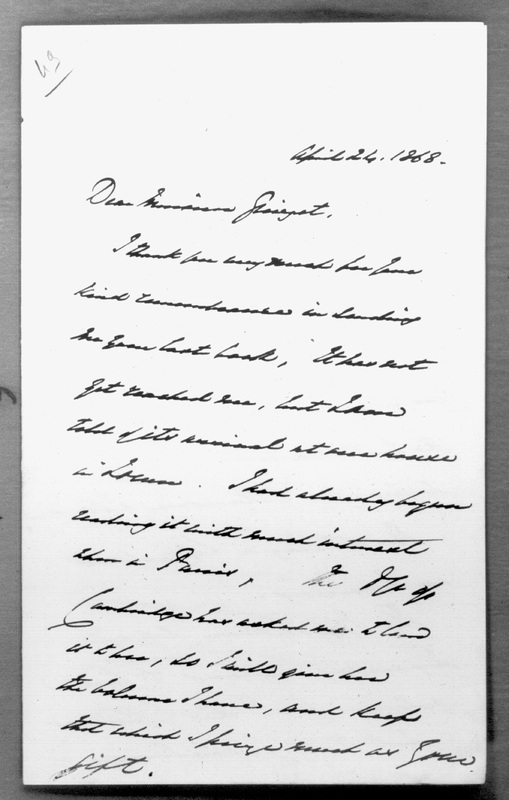 49
April 24. 1868.
Dear Monsieur Guizot,
I thank you very much for your
kind remembrance in sending
me your last book, It has not
yet reached me, but I am
told of its arrival at our house
in Town. I had already begun
reading it with much interest
when in Paris, The Dss of
Cambridge has asked me to lend
it to her, so I will give her
the volume I have, and keep
that which I prize much as your
gift.